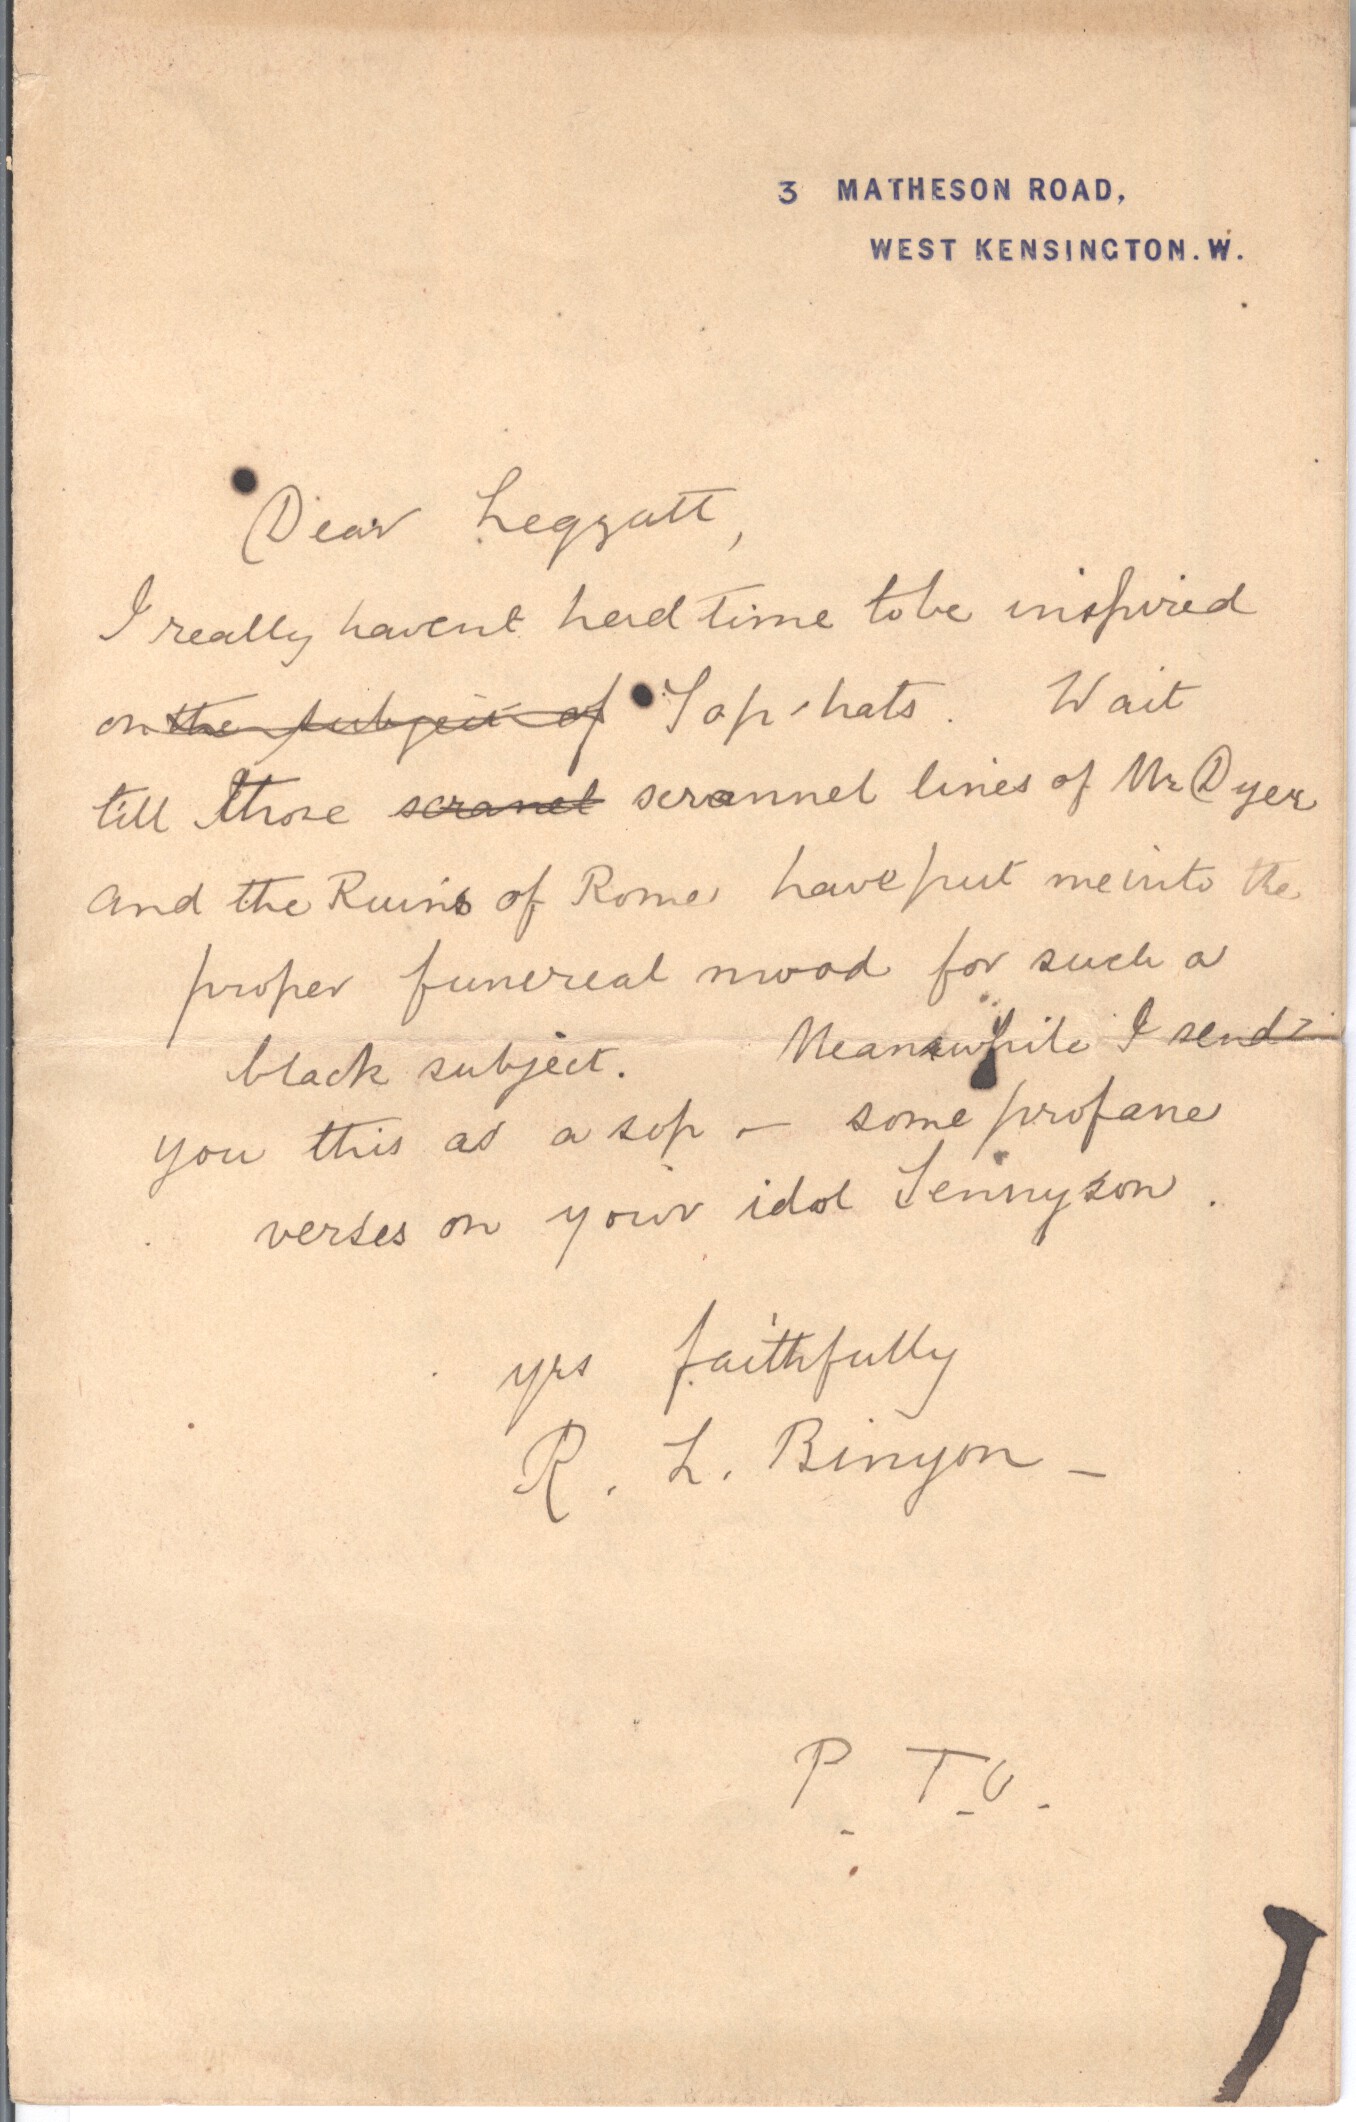 3 MATHESON ROAD,
WEST KENSINGTON. W.
Dear Leggatt,
I really havent had time to be inspired
on the subject of Top-hats. Wait
till those scranel scrannel lines of Mr Dyer
and the Ruins of Rome have put me into the
proper funereal mood for such a
black subject. Meanwhile I send
you this as a sop – some profane
verses on your idol Tennyson.
yrs faithfully
R. L. Binyon –
P. T. O.